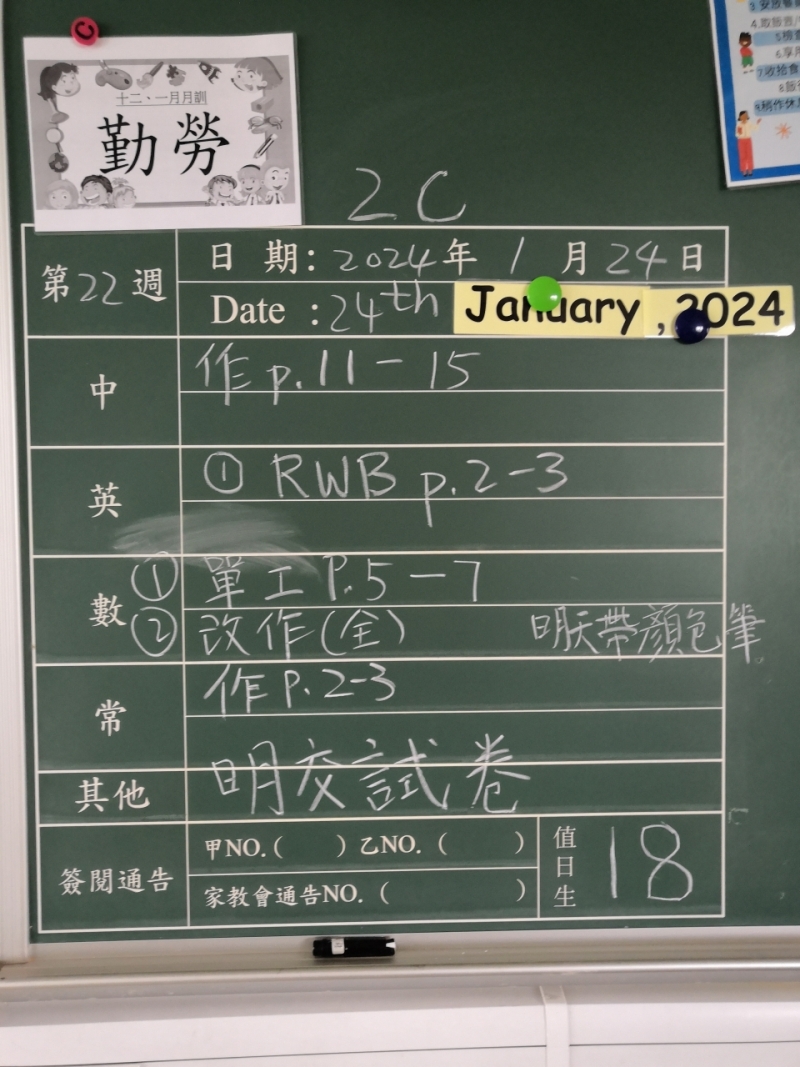 十二、一月月訓
勤勞
3.安放餐
5.檢查
6.享用
7.收拾食
8.飯
2C
第22週
日 期：2024年1月24日
Date : 24th January, 2024
中
作p.11-15
英
① RWB p.2-3
數
① 單工P.5-7
② 改作(全) 明天帶顏色筆
常
作P.2-3
其他
明交試卷
簽閱通告
甲NO.( ) 乙NO. ( )
家教會通告NO. ( )
值日生
18